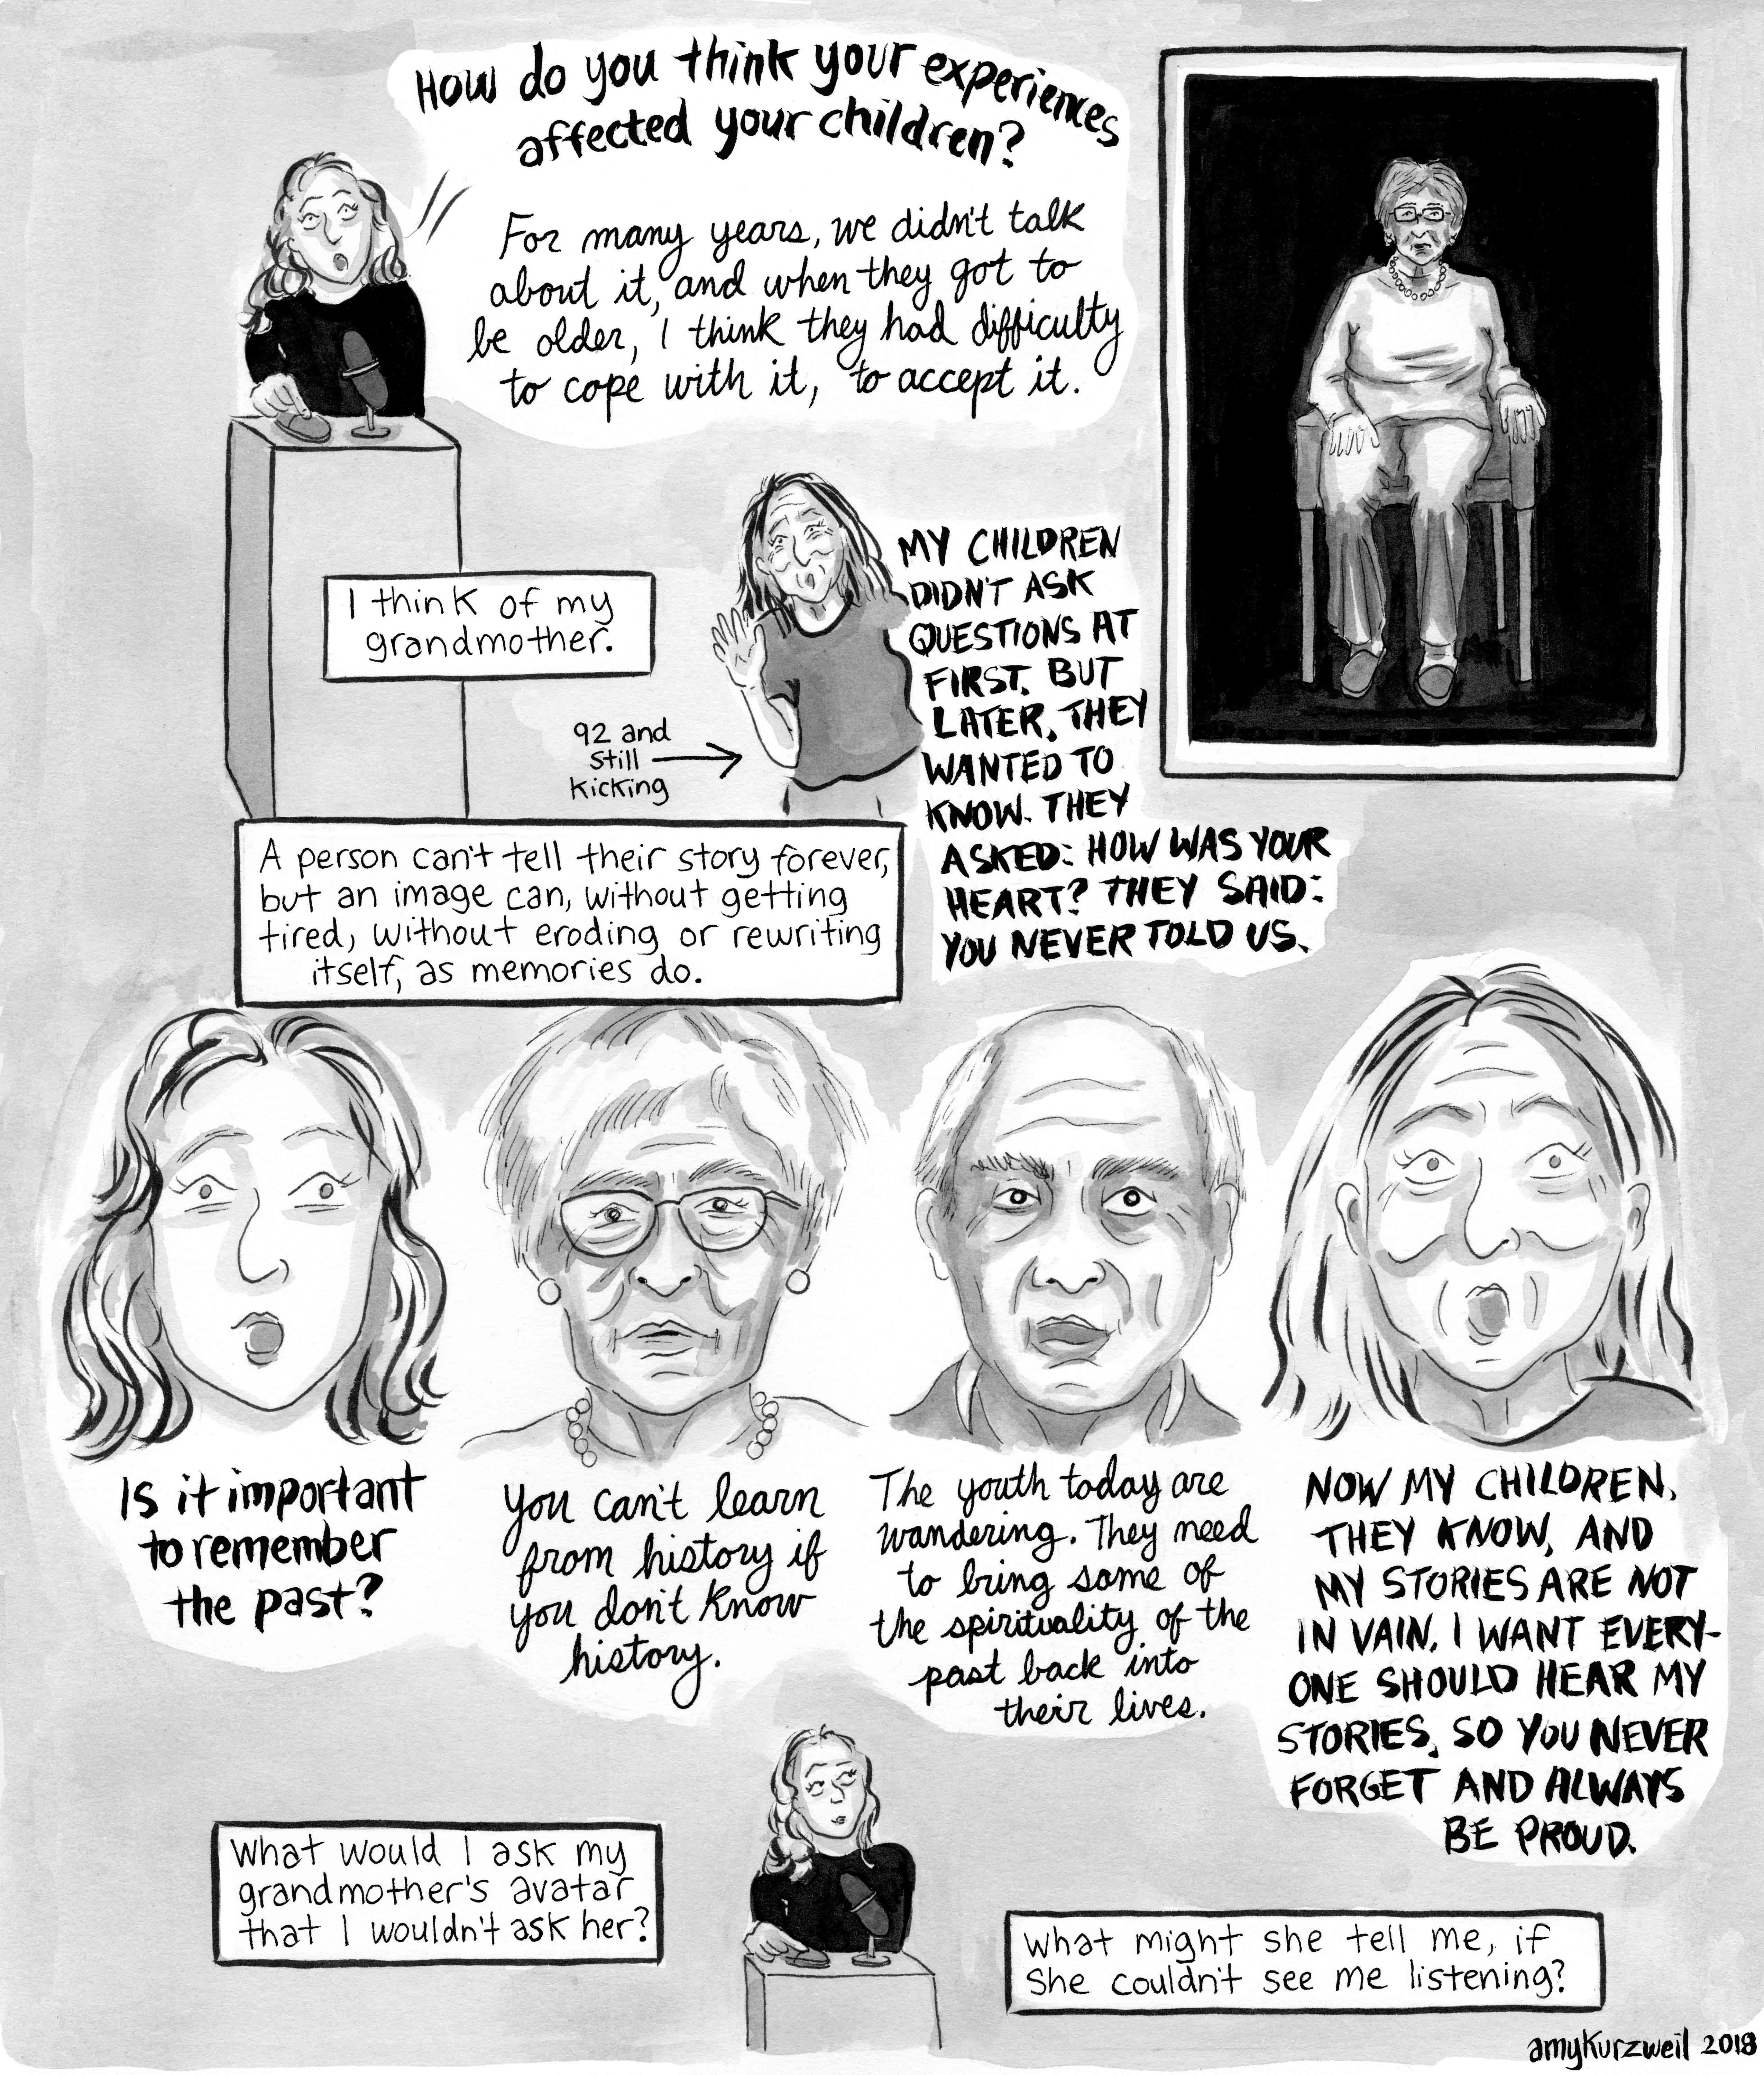 How do you think your experiences
affected your children?
For many years, we didn't talk
about it, and when they got to
be older, I think they had difficulty
to cope with it, to accept it.
I think of my
grandmother.
92 and
still
kicking
MY CHILDREN
DIDN'T ASK
QUESTIONS AT
FIRST. BUT
LATER, THEY
WANTED TO
KNOW. THEY
ASKED: HOW WAS YOUR
HEART? THEY SAID:
YOU NEVER TOLD US.
A person can't tell their story forever,
but an image can, without getting
tired, without eroding or rewriting
itself, as memories do.
Is it important
to remember
the past?
You can't learn
from history if
you don't know
history.
The youth today are
wandering. They need
to bring some of
the spirituality of the
past back into
their lives.
NOW MY CHILDREN,
THEY KNOW, AND
MY STORIES ARE NOT
IN VAIN. I WANT EVERY-
ONE SHOULD HEAR MY
STORIES, SO YOU NEVER
FORGET AND ALWAYS
BE PROUD.
What would I ask my
grandmother's avatar
that I wouldn't ask her?
What might she tell me, if
she couldn't see me listening?
amyKurzweil 2018